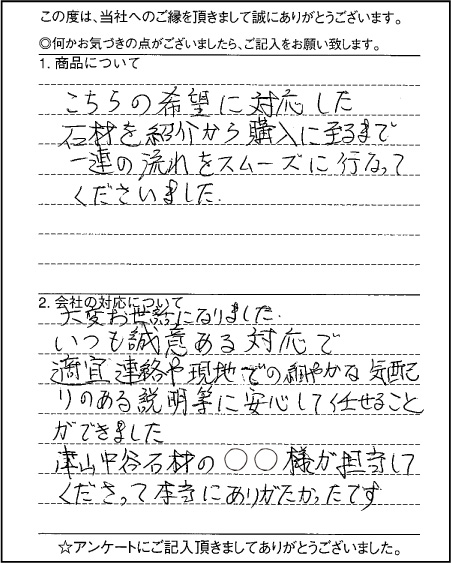 この度は、当社へのご縁を頂きまして誠にありがとうございます。
◎何かお気づきの点がございましたら、ご記入をお願い致します。
1. 商品について
こちらの希望に対応した
石材を紹介から購入に至るまで
一連の流れをスムーズに行なって
くださいました.
2. 会社の対応について
大変お世話になりました.
いつも誠意ある対応で
適宜連絡や現地での細やかな気配
りのある説明等に安心して任せること
ができました
津山中谷石材の○○様が担当して
くださって本当にありがたかったです
☆アンケートにご記入頂きましてありがとうございました。